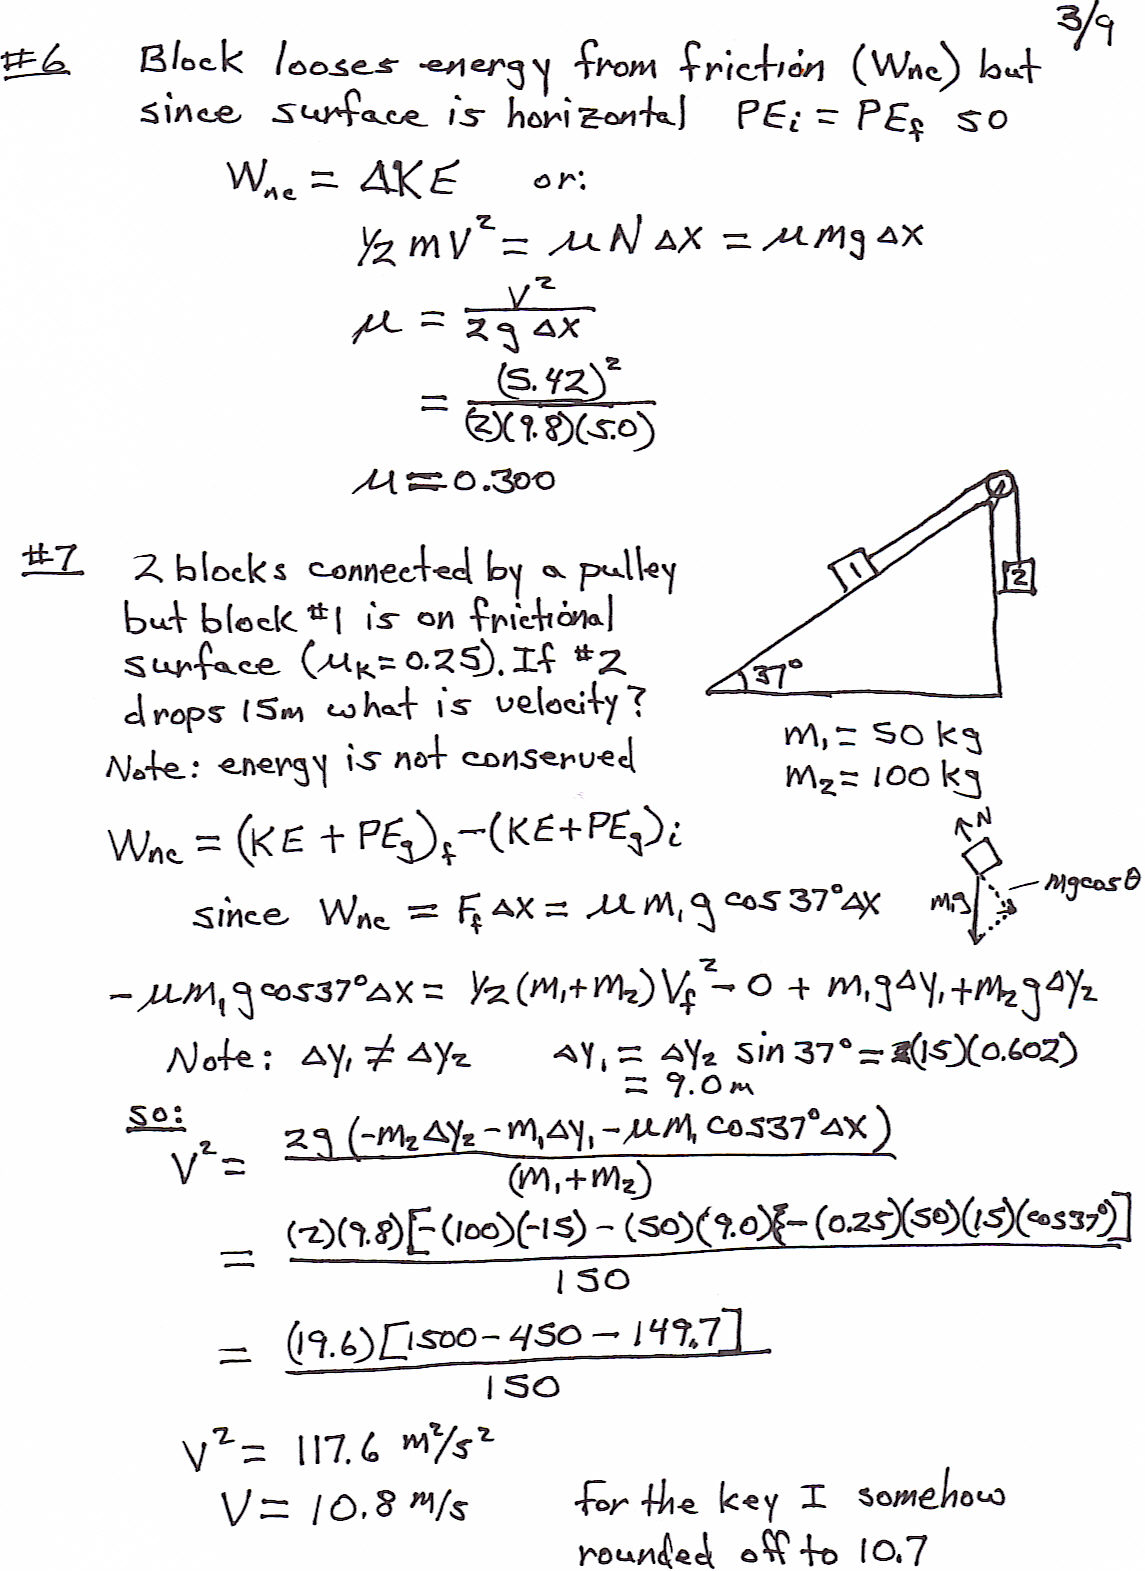 3/9
#6 Block looses energy from friction (Wnc) but
since surface is horizontal PEi = PEf so
Wnc = ΔKE or:
1/2 mV² = μNΔX = μmgΔX
μ = V² / 2gΔX
= (5.42)² / (2)(9.8)(5.0)
μ = 0.300
#7 2 blocks connected by a pulley
but block #1 is on frictional
surface (μK = 0.25). If #2
drops 15m what is velocity?
Note: energy is not conserved
1
2
37°
m₁ = 50 kg
m₂ = 100 kg
Wnc = (KE + PEg)f - (KE + PEg)i
N
mgcosθ
m₁g
since Wnc = Ff ΔX = μm₁g cos37°ΔX
-μm₁g cos37°ΔX = 1/2(m₁+m₂)Vf² - 0 + m₁gΔy₁ + m₂gΔy₂
Note: Δy₁ ≠ Δy₂ Δy₁ = Δy₂ sin37° = (15)(0.602)
= 9.0m
so:
V² = 2g(-m₂Δy₂ - m₁Δy₁ - μm₁ cos37°ΔX) / (m₁+m₂)
= (2)(9.8)[-(100)(-15) - (50)(9.0) - (0.25)(50)(15)(cos37°)] / 150
= (19.6)[1500 - 450 - 149.7] / 150
V² = 117.6 m²/s²
V = 10.8 m/s
for the key I somehow
rounded off to 10.7